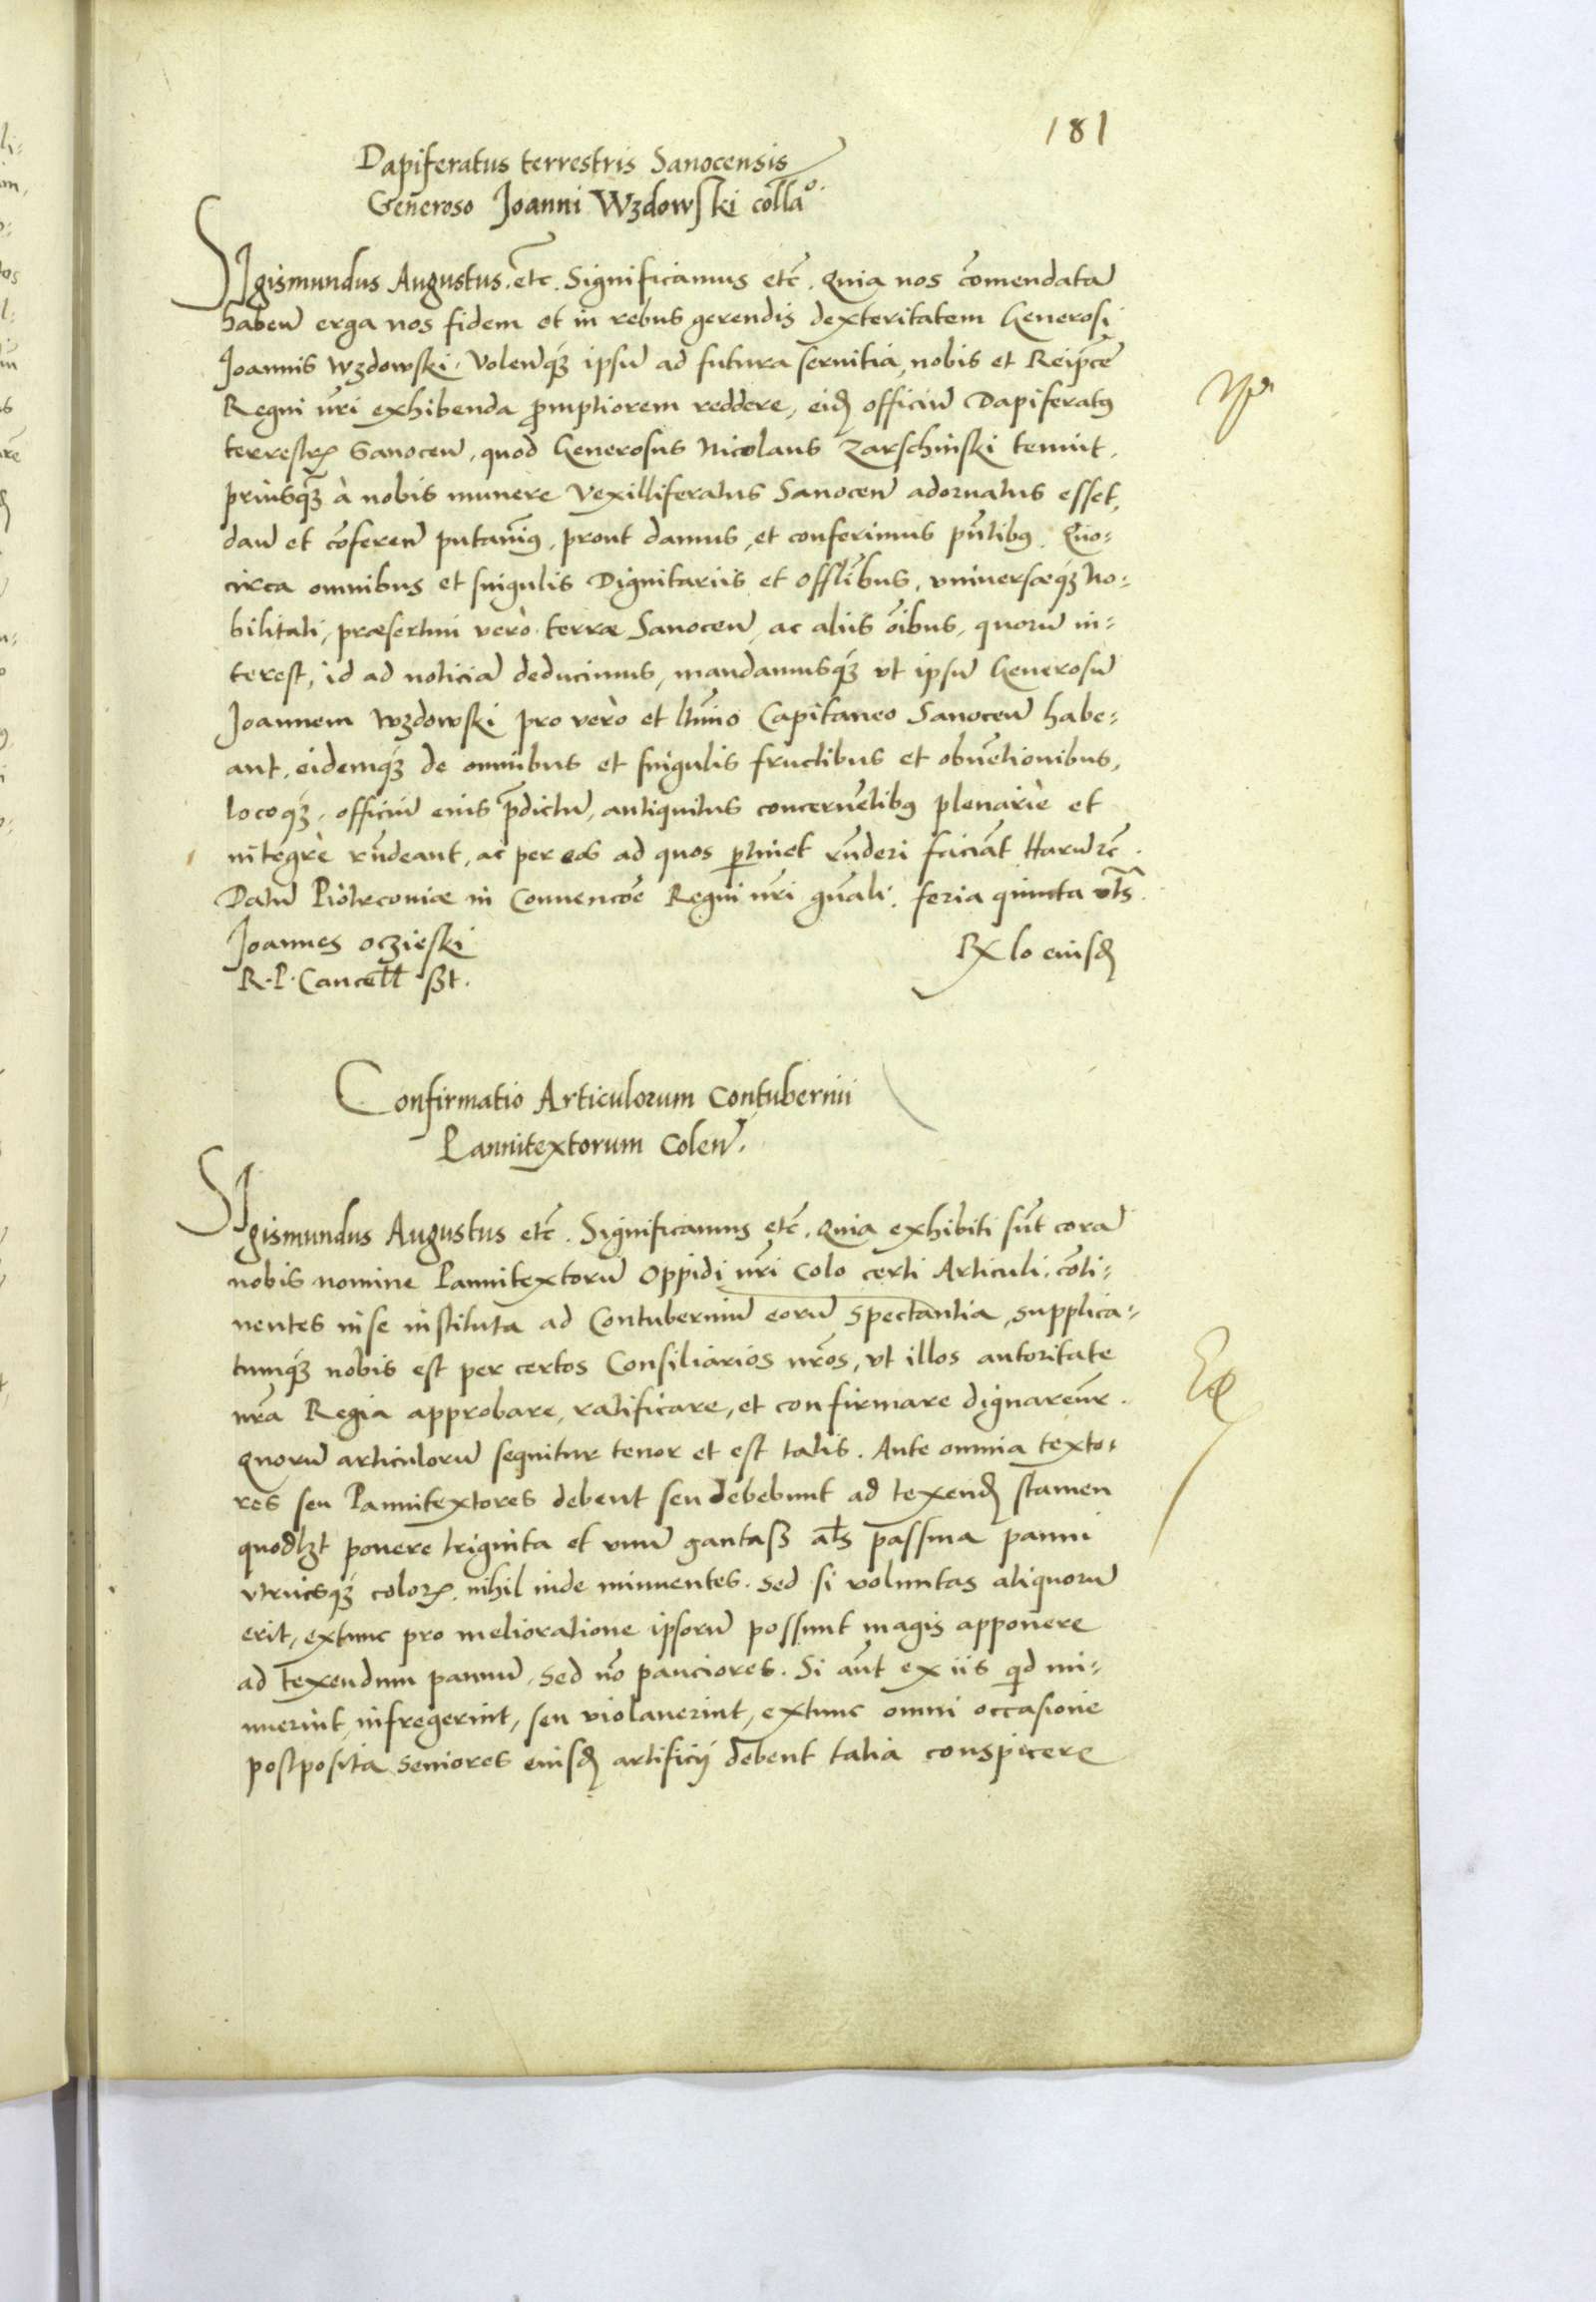 181
Dapiferatus terrestris Sanocensis
Generoso Joanni Wzdowski colla°.
SIgismundus Augustus. etc. Significamus etc̃. Quia nos cõmendatã
habeñ erga nos fidem et in rebus gerendis dexteritatem Generosi
Joannis Wzdowski. Volenq́ʒ ipsũ ad futura seruitia, nobis et Reipcẽ
Regni nr̃i exhibenda p̃mptiorem reddere, eidꝫ officiũ Dapiferatꝰ
terrestrꝭ Sanoceñ, quod Generosus Nicolaus Zarschinski tenuit,
priusq̃ʒ à nobis munere Vexilliferatus Sanoceñ adornatus esset,
dañ et cõfereñ putauimꝰ, prout damus, et conferimus pñtibꝰ. Quo⸗
circa omnibus et singulis Dignitariis et Offlibus, vniuersæq́ʒ No⸗
bilitati, præsertim verò terræ Sanoceñ, ac aliis oĩbus, quorũ in⸗
terest, id ad noticiã deducimus, mandamusq́ʒ vt ipsũ Generosũ
Joannem Wzdowski pro vero et ltĩmo Capitaneo Sanoceñ habe⸗
ant, eidemq́ʒ de omnibus et singulis fructibus et obuẽtionibus,
locoq́ʒ, officiũ eius p̃dictũ, antiquitus concernẽtibꝰ plenariè et
integrè rñdeant, ac per eos ad quos ptinet rñderi faciãt Harũ ꝛc̃.
Datũ Piotrconiæ in Conuencõe Regni nr̃i gñali, feria quinta vts̃.
Joannes Oczieski
R. P. Cancell sst.
Rx lo eiusdꝫ
Confirmatio Articulorum Contubernii
Pannitextorum Coleñ.
SIgismundus Augustus etc̃. Significamus etc̃. Quia exhibiti sũt corã
nobis nomine Pannitextorũ Oppidi nr̃i Colo certi Articuli, cõti⸗
nentes in se instituta ad Contuberniũ eorũ spectantia, supplica⸗
tumq́ʒ nobis est per certos Consiliarios nr̃os, vt illos autoritate
nr̃a Regia approbare, ratificare, et confirmare dignarem̃r.
Quorũ articulorũ sequitur tenor et est talis. Ante omnia texto⸗
res seu Pannitextores debent seu debebunt ad texendꝫ stamen
quodlzt ponere triginta et vnũ gantass als passma panni
vtriusq́ʒ colorꝭ, nihil inde minuentes. Sed si voluntas aliquorũ
erit, extunc pro melioratione ipsorũ possunt magis apponere
ad texendum pannũ, sed nõ pauciores. Si aũt ex iis qd mi⸗
nuerint, infregerint, seu violauerint, extunc omni occasione
postposita seniores eiusdꝫ artificij debent talia conspicere